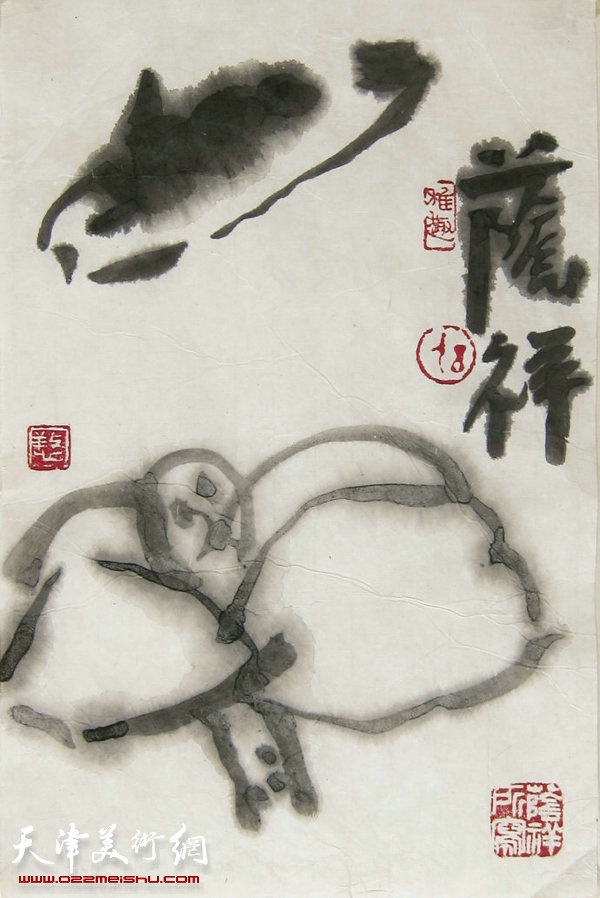 蔭祥
雅趣
蔭祥
所寫
天津美術網
www.022meishu.com